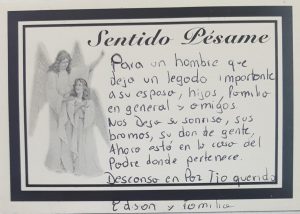 Sentido Pésame
Para un hombre que
deja un legado importante
a su esposa, hijos, familia
en general y amigos.
Nos deja su sonrisa, sus
bromas, su don de gente,
Ahora está en la casa del
Padre donde pertenece.
Descansa en Paz Tio querido
Edson y familia